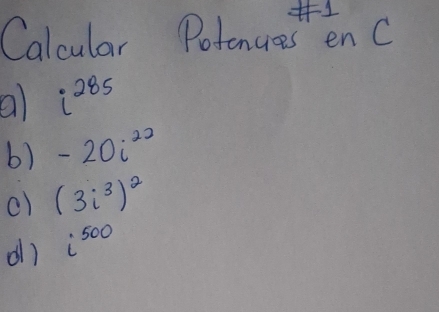 #1
Calcular Potencias en C
a) i²⁸⁵
b) - 20i²²
c) (3i³)²
d) i⁵⁰⁰